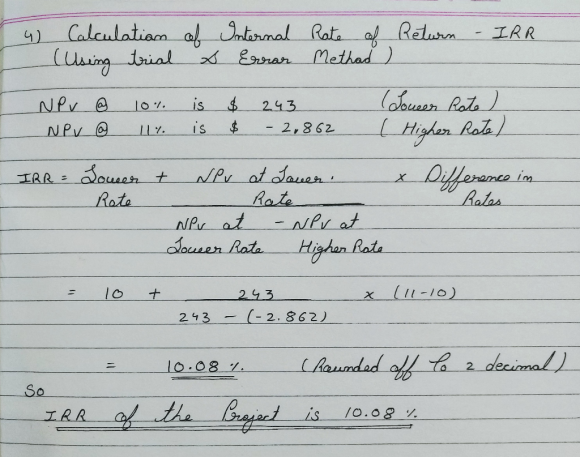 4) Calculation of Internal Rate of Return - IRR
(Using trial & Error Method)
NPV @ 10%. is $ 243 (Lower Rate)
NPV @ 11%. is $ - 2,862 (Higher Rate)
IRR = Lower + NPV at Lower. x Difference in
Rate Rate Rates
NPV at - NPV at
Lower Rate Higher Rate
= 10 + 243 x (11-10)
243 - (-2.862)
= 10.08 %. (Rounded off To 2 decimal)
So
IRR of the Project is 10.08 %.